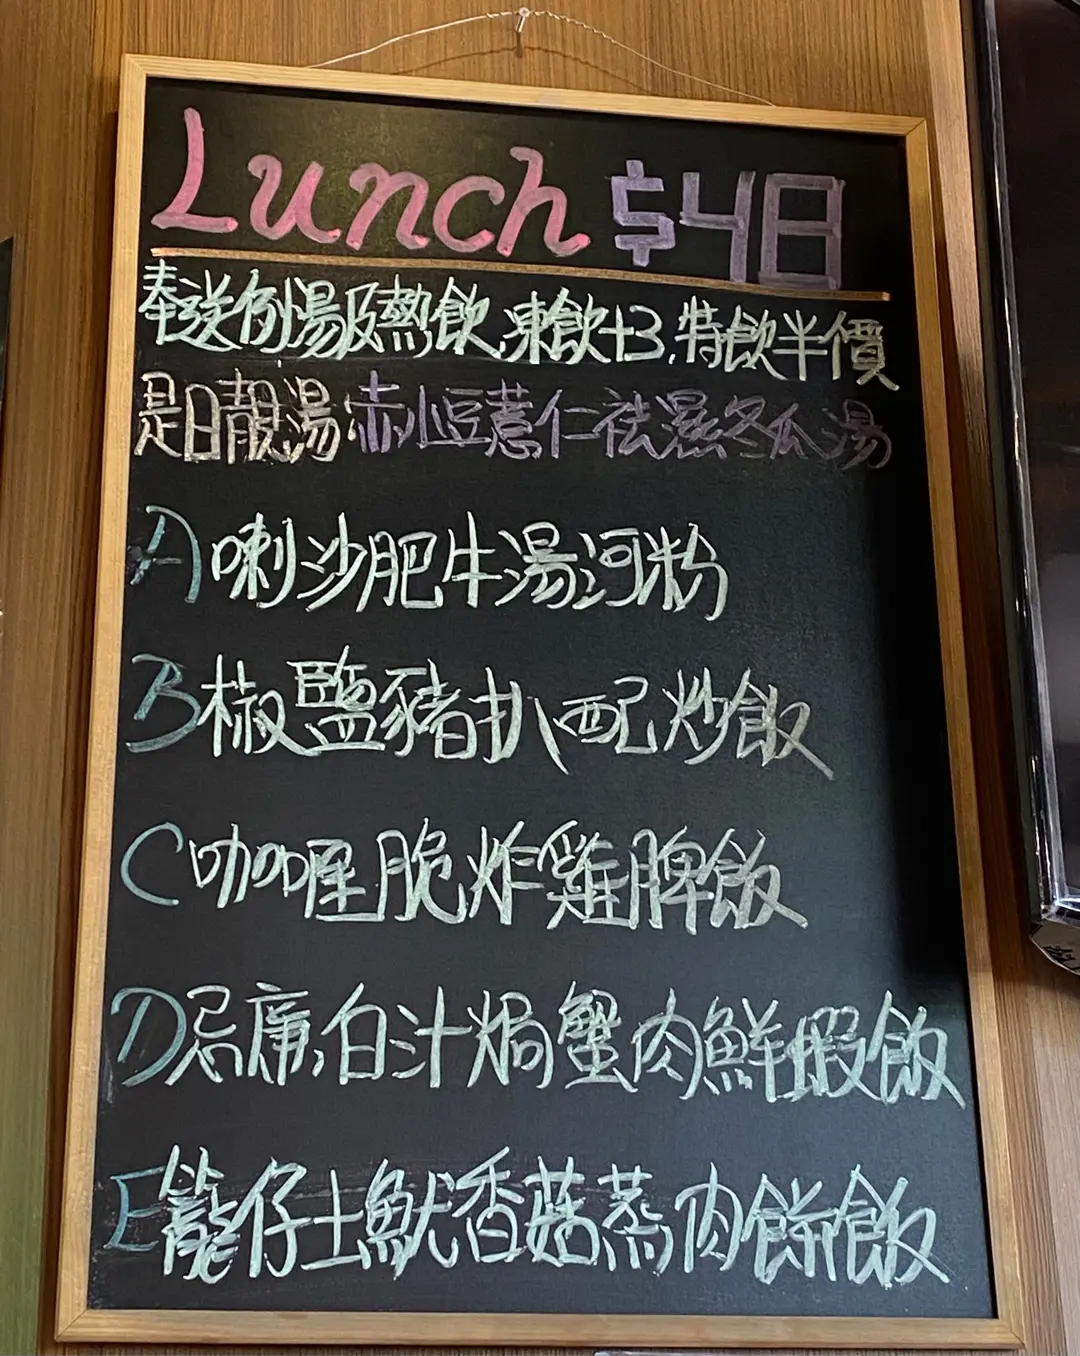 Lunch $48
奉送例湯及熱飲,凍飲+3,特飲半價
是日靚湯:赤小豆薏仁祛濕冬瓜湯
A)喇沙肥牛湯河粉
B椒鹽豬扒配炒飯
C咖喱脆炸雞脾飯
D)忌廉白汁焗蟹肉鮮蝦飯
E籠仔土魷香菇蒸肉餅飯